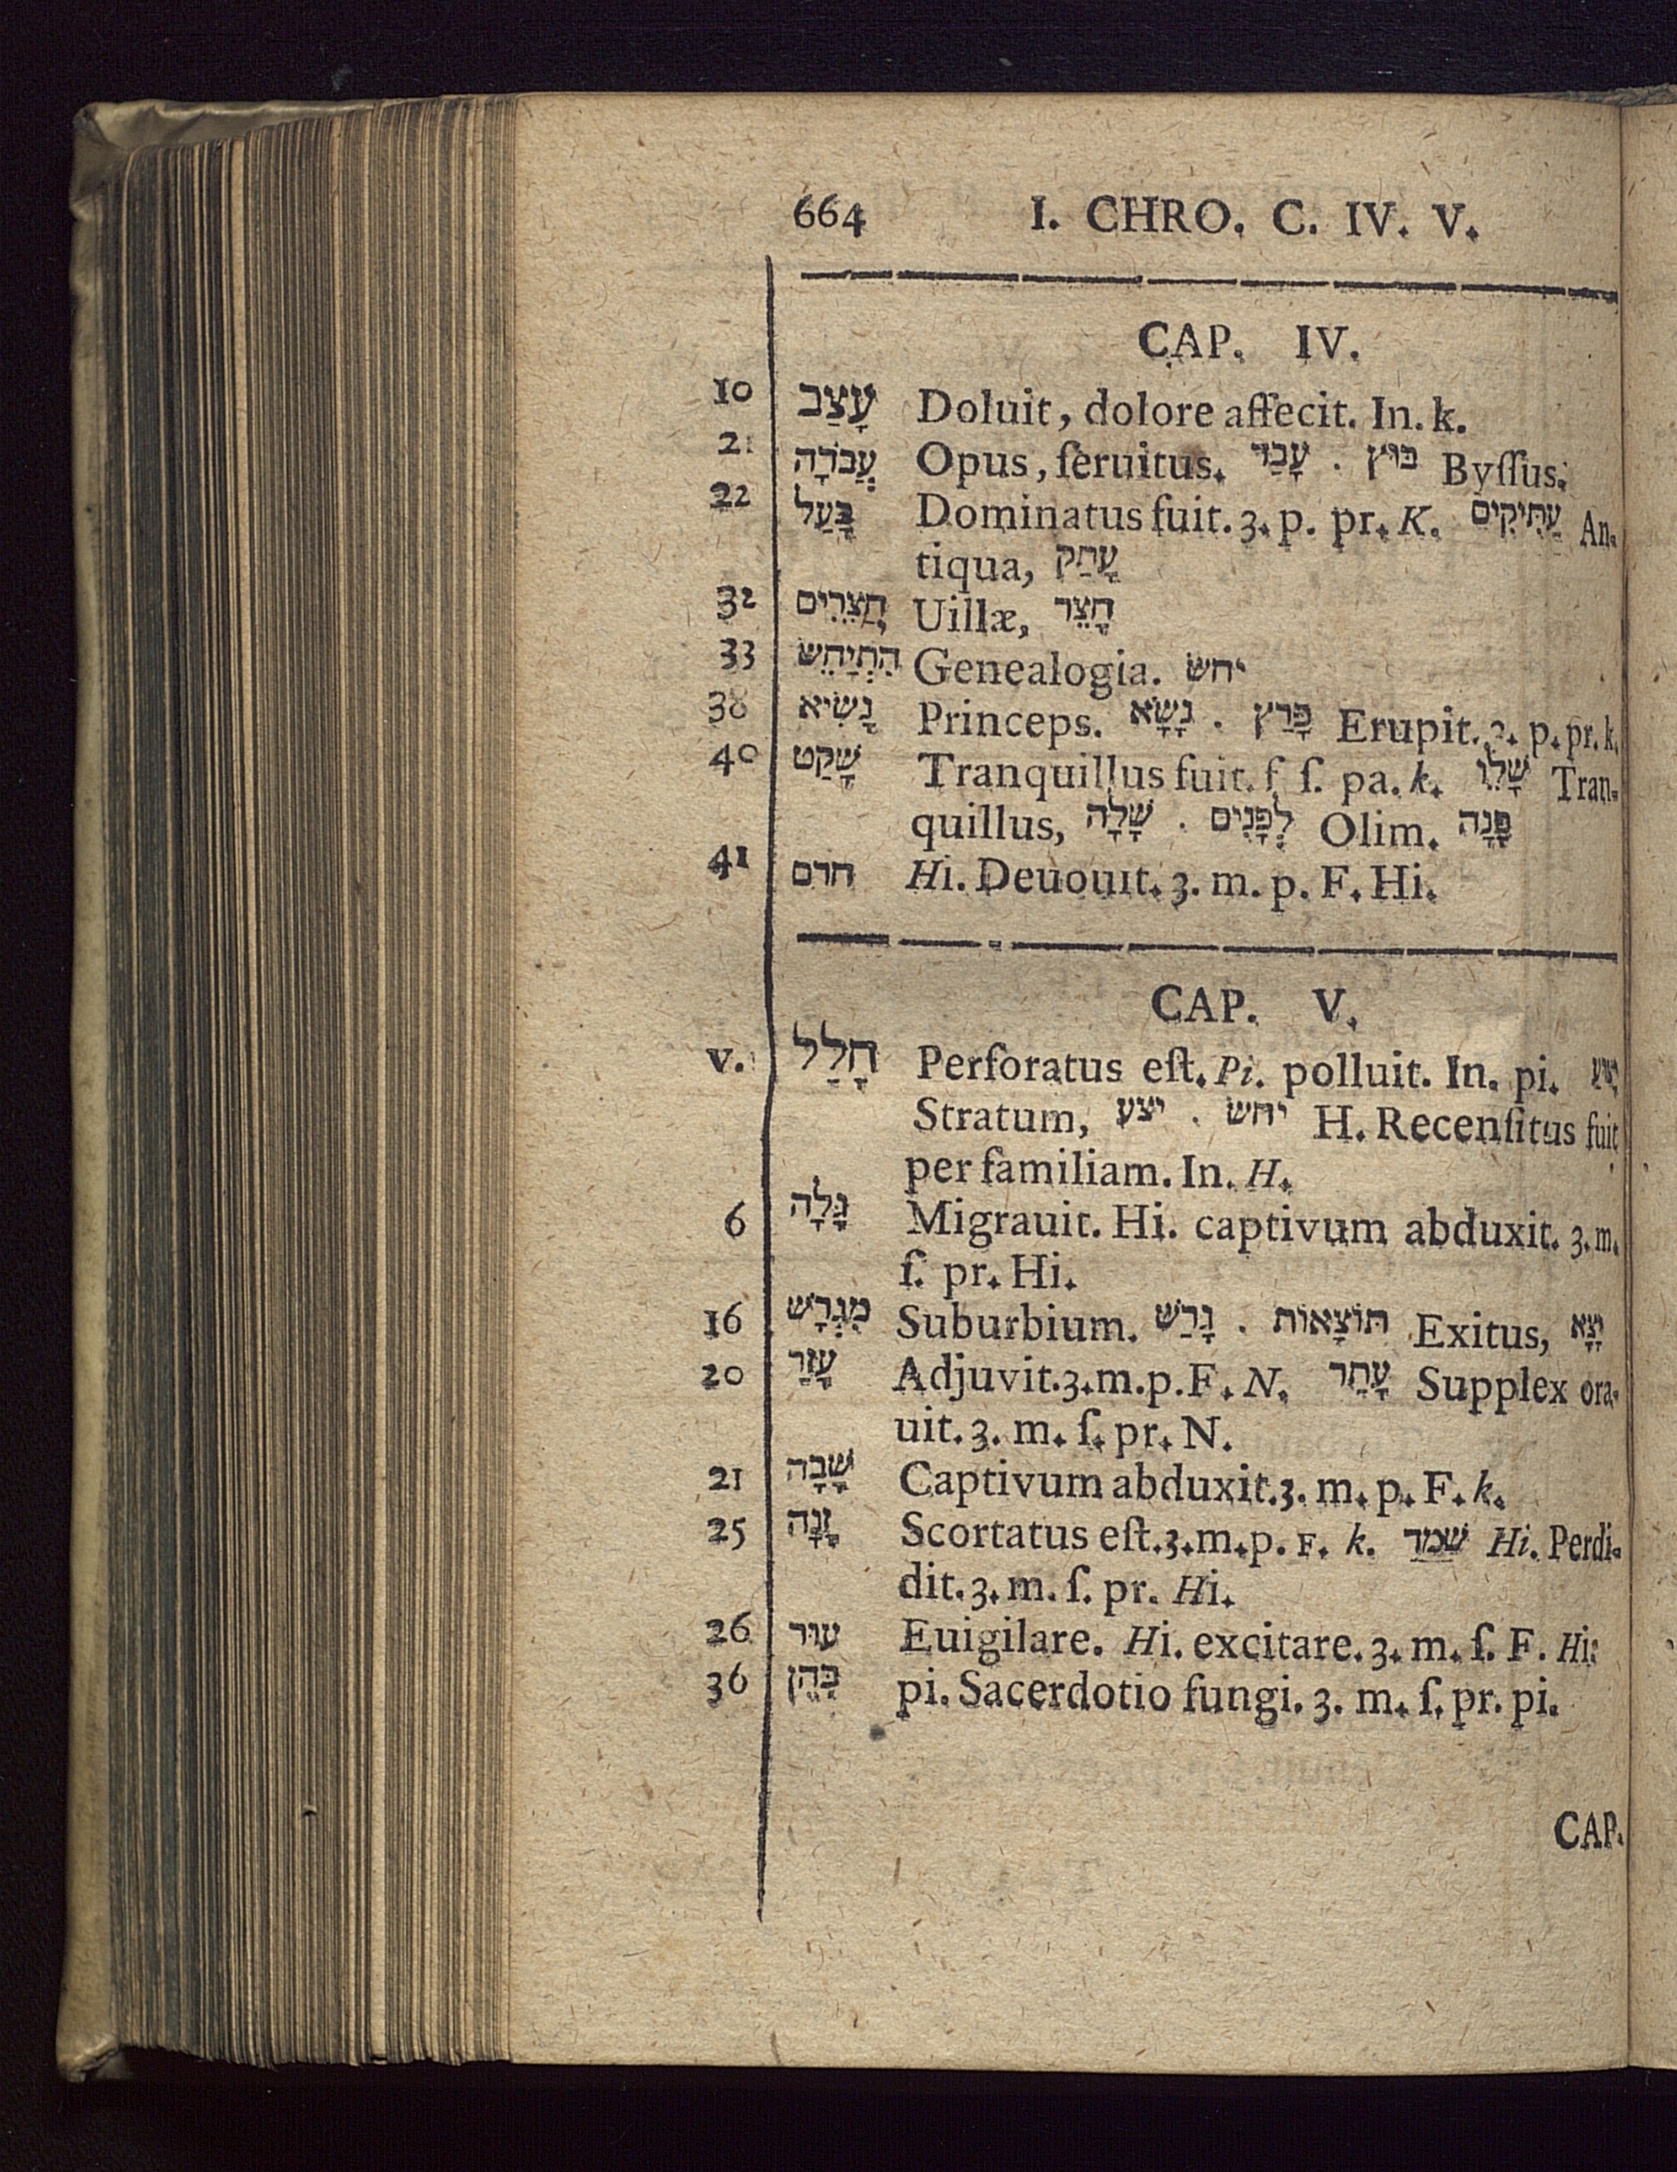 664 I. CHRO. C. IV. V.
CAP. IV.
10 עָצַב Doluit, dolore affecit. In. k.
21 עֲבֹדָה Opus, ſeruitus. עָבַד . בוּץ Byſſus.
22 בָּעַל Dominatus fuit. 3. p. pr. K. עַתִּיקִים An-
tiqua, עָתַק
32 חֲצֵרִים Uillæ, חָצֵר
33 הִתְיַחֵשׂ Genealogia. יחשׂ
38 נָשִׂיא Princeps. נָשָׂא . פָּרַץ Erupit. 3. p. pr. k.
40 שָׁקַט Tranquillus fuit. f ſ. pa. k. שָׁלֵו Tran-
quillus, שָׁלָה . לְפָנִים Olim. פָּנָה
41 חרם Hi. Deuouit. 3. m. p. F. Hi.
CAP. V.
v. חָלַל Perforatus eſt. Pi. polluit. In. pi.
Stratum, יצע . יחשׂ H. Recenſitus fuit
per familiam. In. H.
6 גָּלָה Migrauit. Hi. captivum abduxit. 3. m.
ſ. pr. Hi.
16 מִגְרָשׁ Suburbium. גָרַשׁ . תּוֹצָאוֹת Exitus, יָצָא
20 עָזַר Adjuvit. 3. m. p. F. N. עָתַר Supplex ora-
uit. 3. m. ſ. pr. N.
21 שָׁבָה Captivum abduxit. 3. m. p. F. k.
25 זָנָה Scortatus eſt. 3. m. p. F. k. Hi. Perdi-
dit. 3. m. ſ. pr. Hi.
26 עוּר Euigilare. Hi. excitare. 3. m. ſ. F. Hi:
36 כִּהֵן pi. Sacerdotio fungi. 3. m. ſ. pr. pi.
CAP.